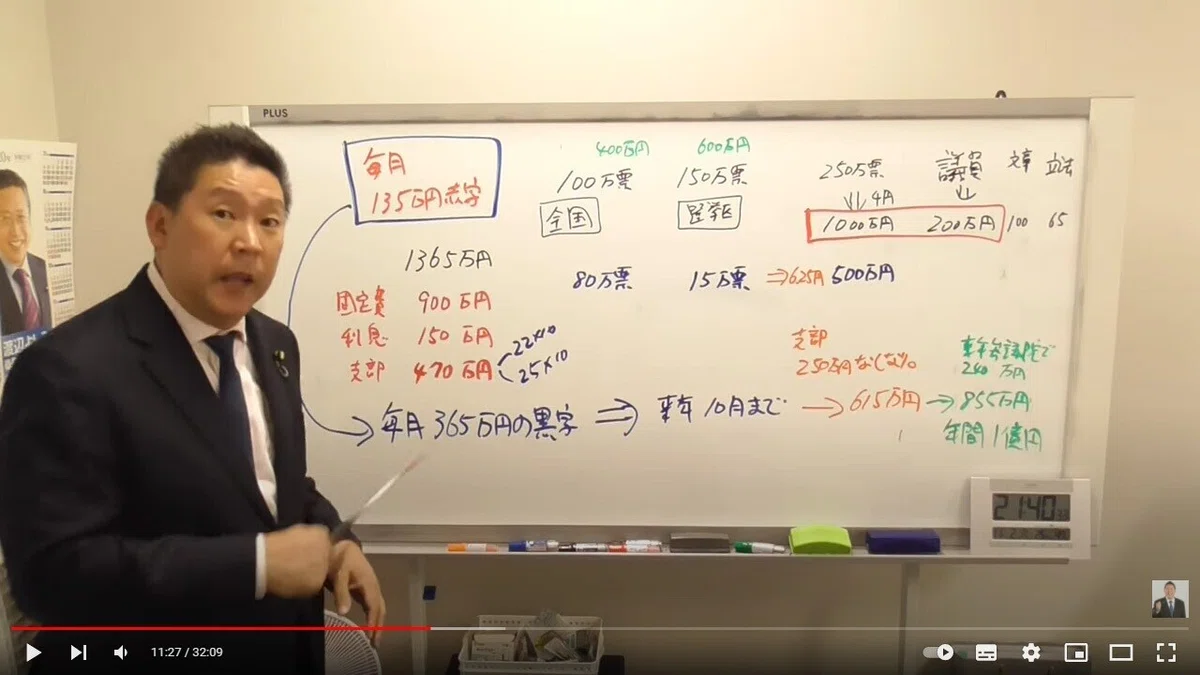 PLUS
毎月
135万円赤字
400万円 600万円
100万票 150万票
全国 選挙区
250万票 議員 文章 立法
4円
1000万円 200万円 100 65
1365万円
80万票 15万票 ⇒625円 500万円
固定費 900万円
利息 150万円
支部 470万円
22×10
25×10
支部
250万円なしなら
来年参議院で
240万円
毎月365万円の黒字 ⇒ 来年10月まで → 615万円 → 855万円
年間1億円
21:40
渡辺
11:27 / 32:09